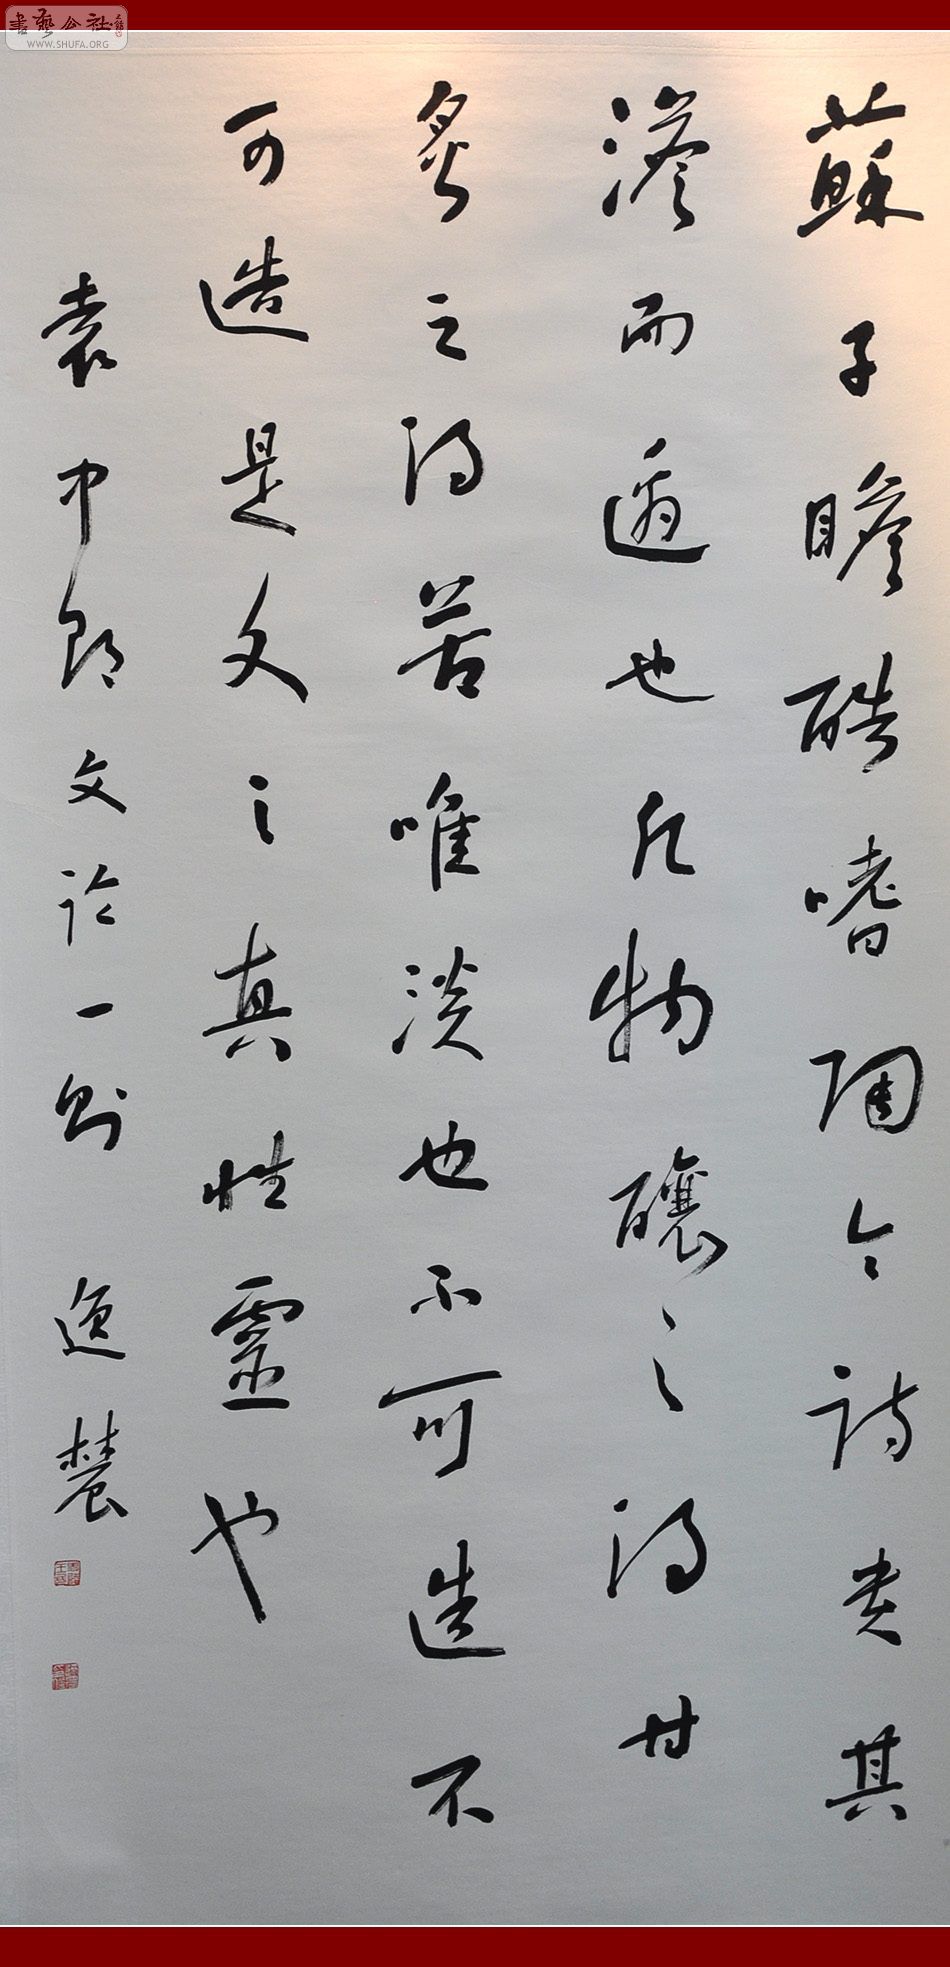 蘇子瞻酷嗜陶令詩貴其
澹而適也凡物釀之得甘
炙之得苦唯淡也不可造不
可造是文之真性靈也
袁中郎文論一則 逸
書藝公社
WWW.SHUFA.ORG